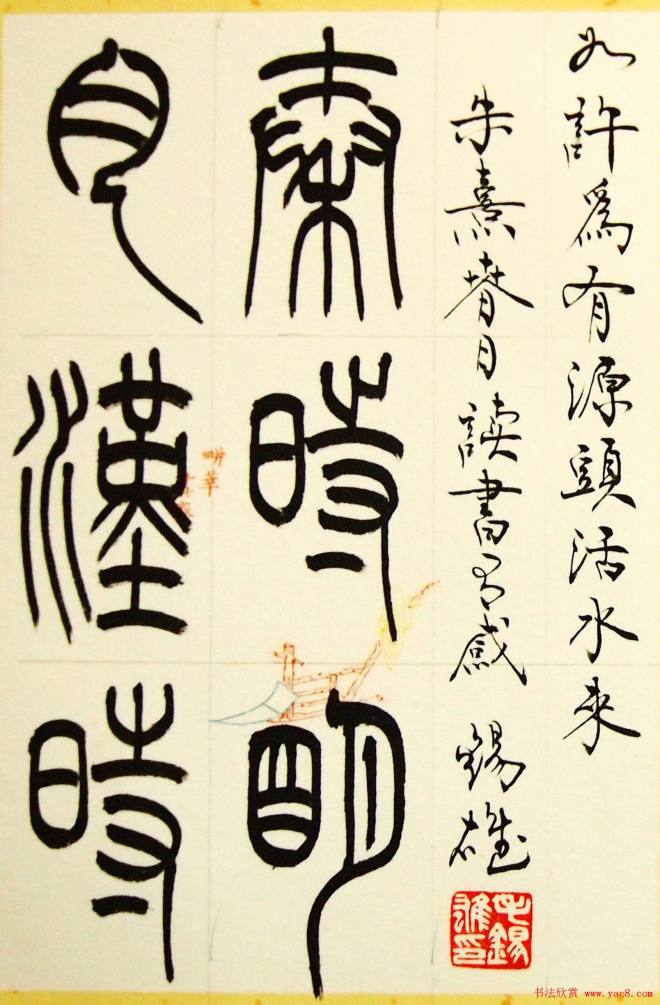 如許爲有源頭活水來
朱熹春日讀書有感 錫雄
毛錫雄印
秦時明
月漢時
书法欣赏 www.yac8.com